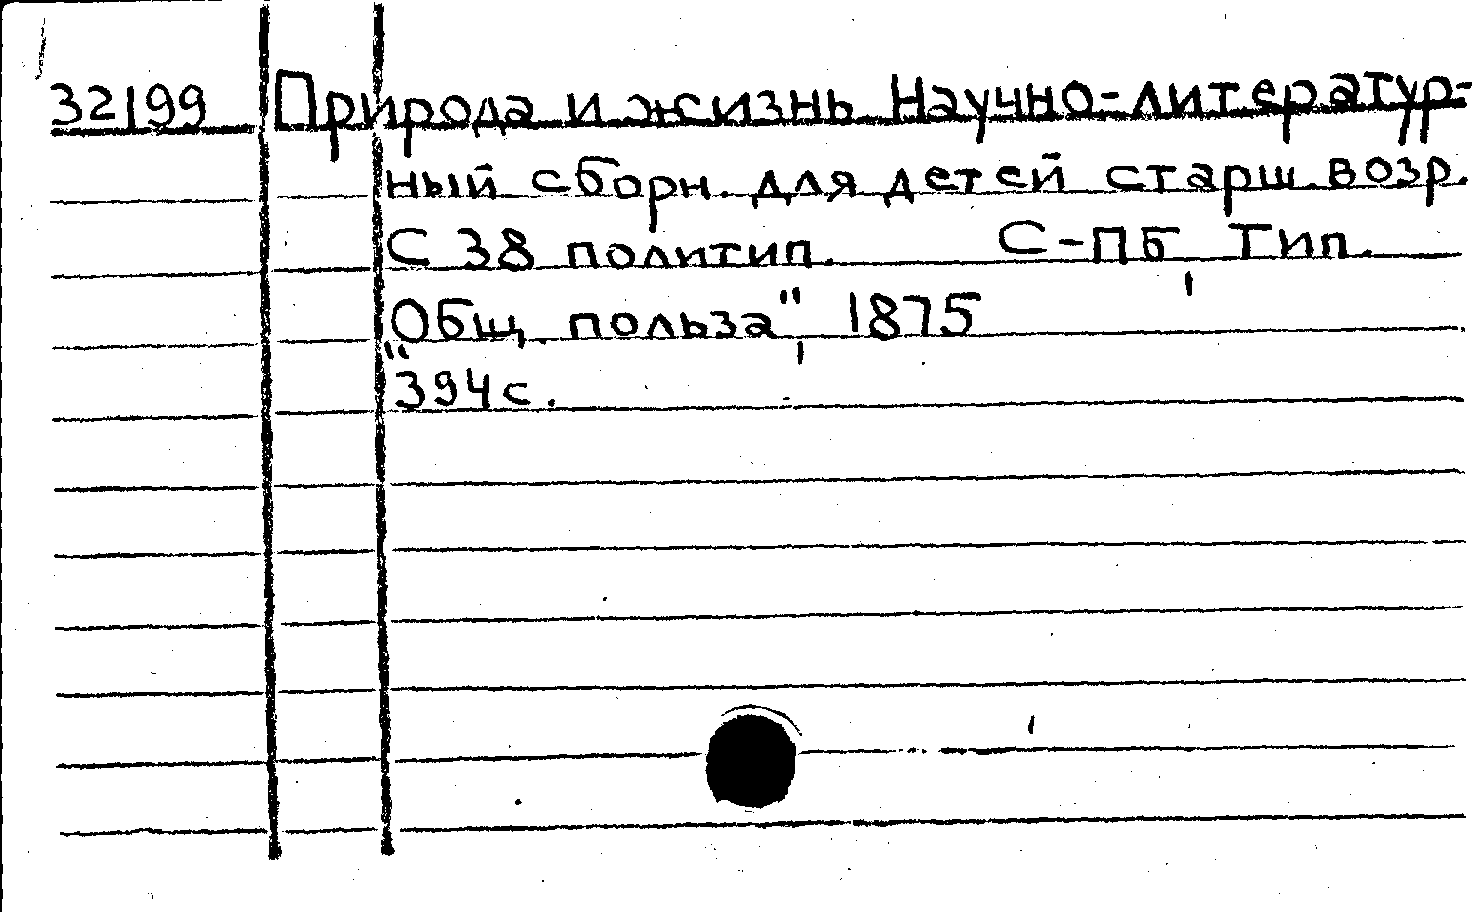 32199 Природа и жизнь Научно-литератур-
ный сборн. для детей старш. возр.
С 38 политип. С-ПБ, Тип.
„Общ. польза", 1875
394 с.